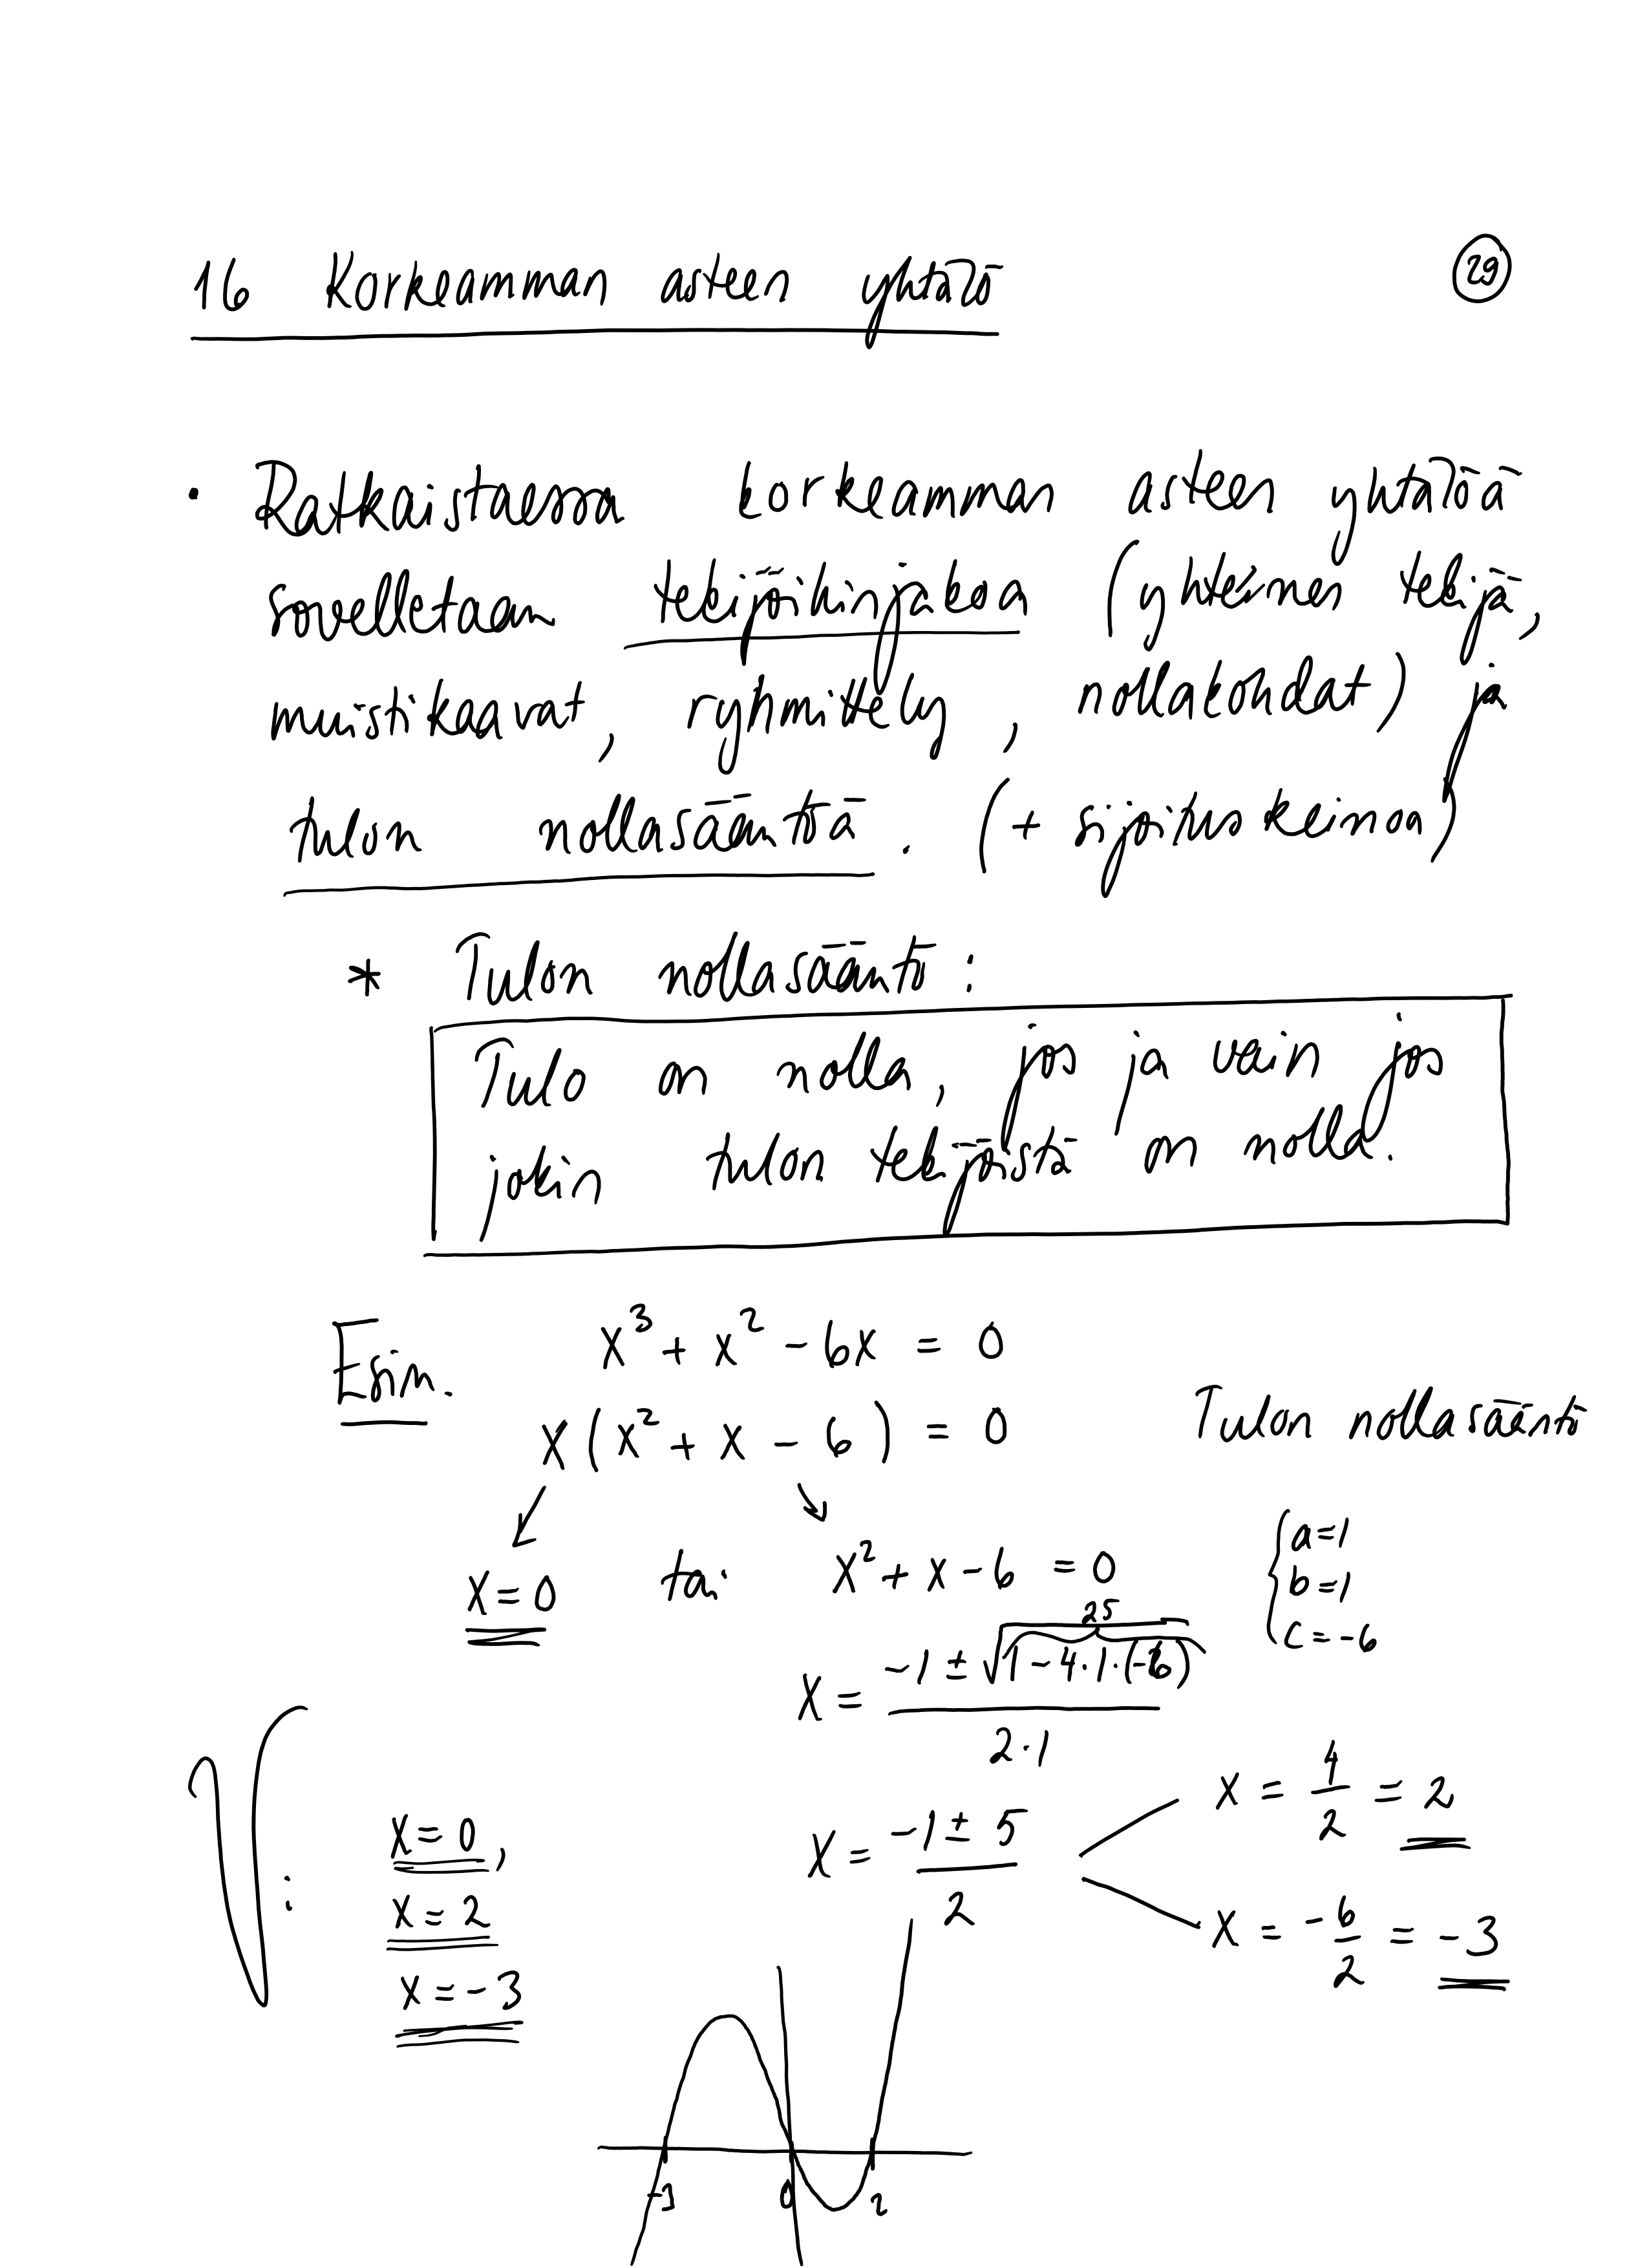 16 Korkeamman asteen yhtälö
29
• Ratkaistaessa korkeamman asteen yhtälöä
sovelletaan tekijöihinjakoa (yhteinen tekijä,
muistikaavat, ryhmittely, nollakohdat) ja
tulon nollasääntöä. (+ sijoituskeinoa)
* Tulon nollasääntö:
Tulo on nolla, jos ja vain jos
jokin tulon tekijöistä on nolla.
Esim. x³ + x² - 6x = 0
x(x² + x - 6) = 0 Tulon nollasääntö
x = 0 tai x² + x - 6 = 0
{a=1
b=1
c=-6
25
x = (-1 ± √(1 - 4·1·(-6))) / (2·1)
x = (-1 ± 5) / 2
x = 4/2 = 2
x = -6/2 = -3
V: x = 0,
x = 2
x = -3
-3 0 2